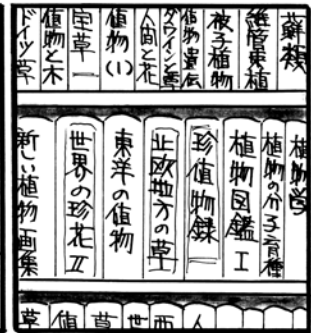 蘚類
維管束植
被子植物
植物遺伝
ダーウィンと草
人間と花
植物(1)
宝草一
植物と木
ドイツ草
植物学
植物の分子育種
植物図鑑I
珍植物録一
北欧地方の草
東洋の植物
世界の珍花II
新しい植物画集
人
西
世
草
植
草